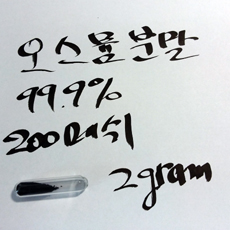 오스뮴분말
99.9%
200메쉬
2gram